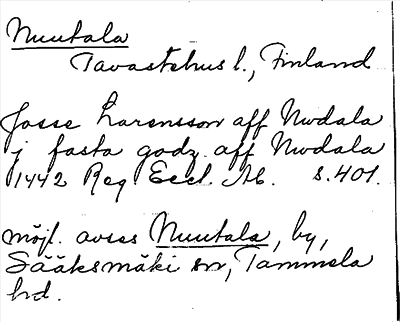 Nuutala
Tavastehus l., Finland
Josse Larensson aff Nwdala
j fasta godz aff Nwdala
1442 Reg Eccl. Ab. s. 401.
möjl. avses Nuutala, by,
Sääksmäki sn, Tammela
hd.